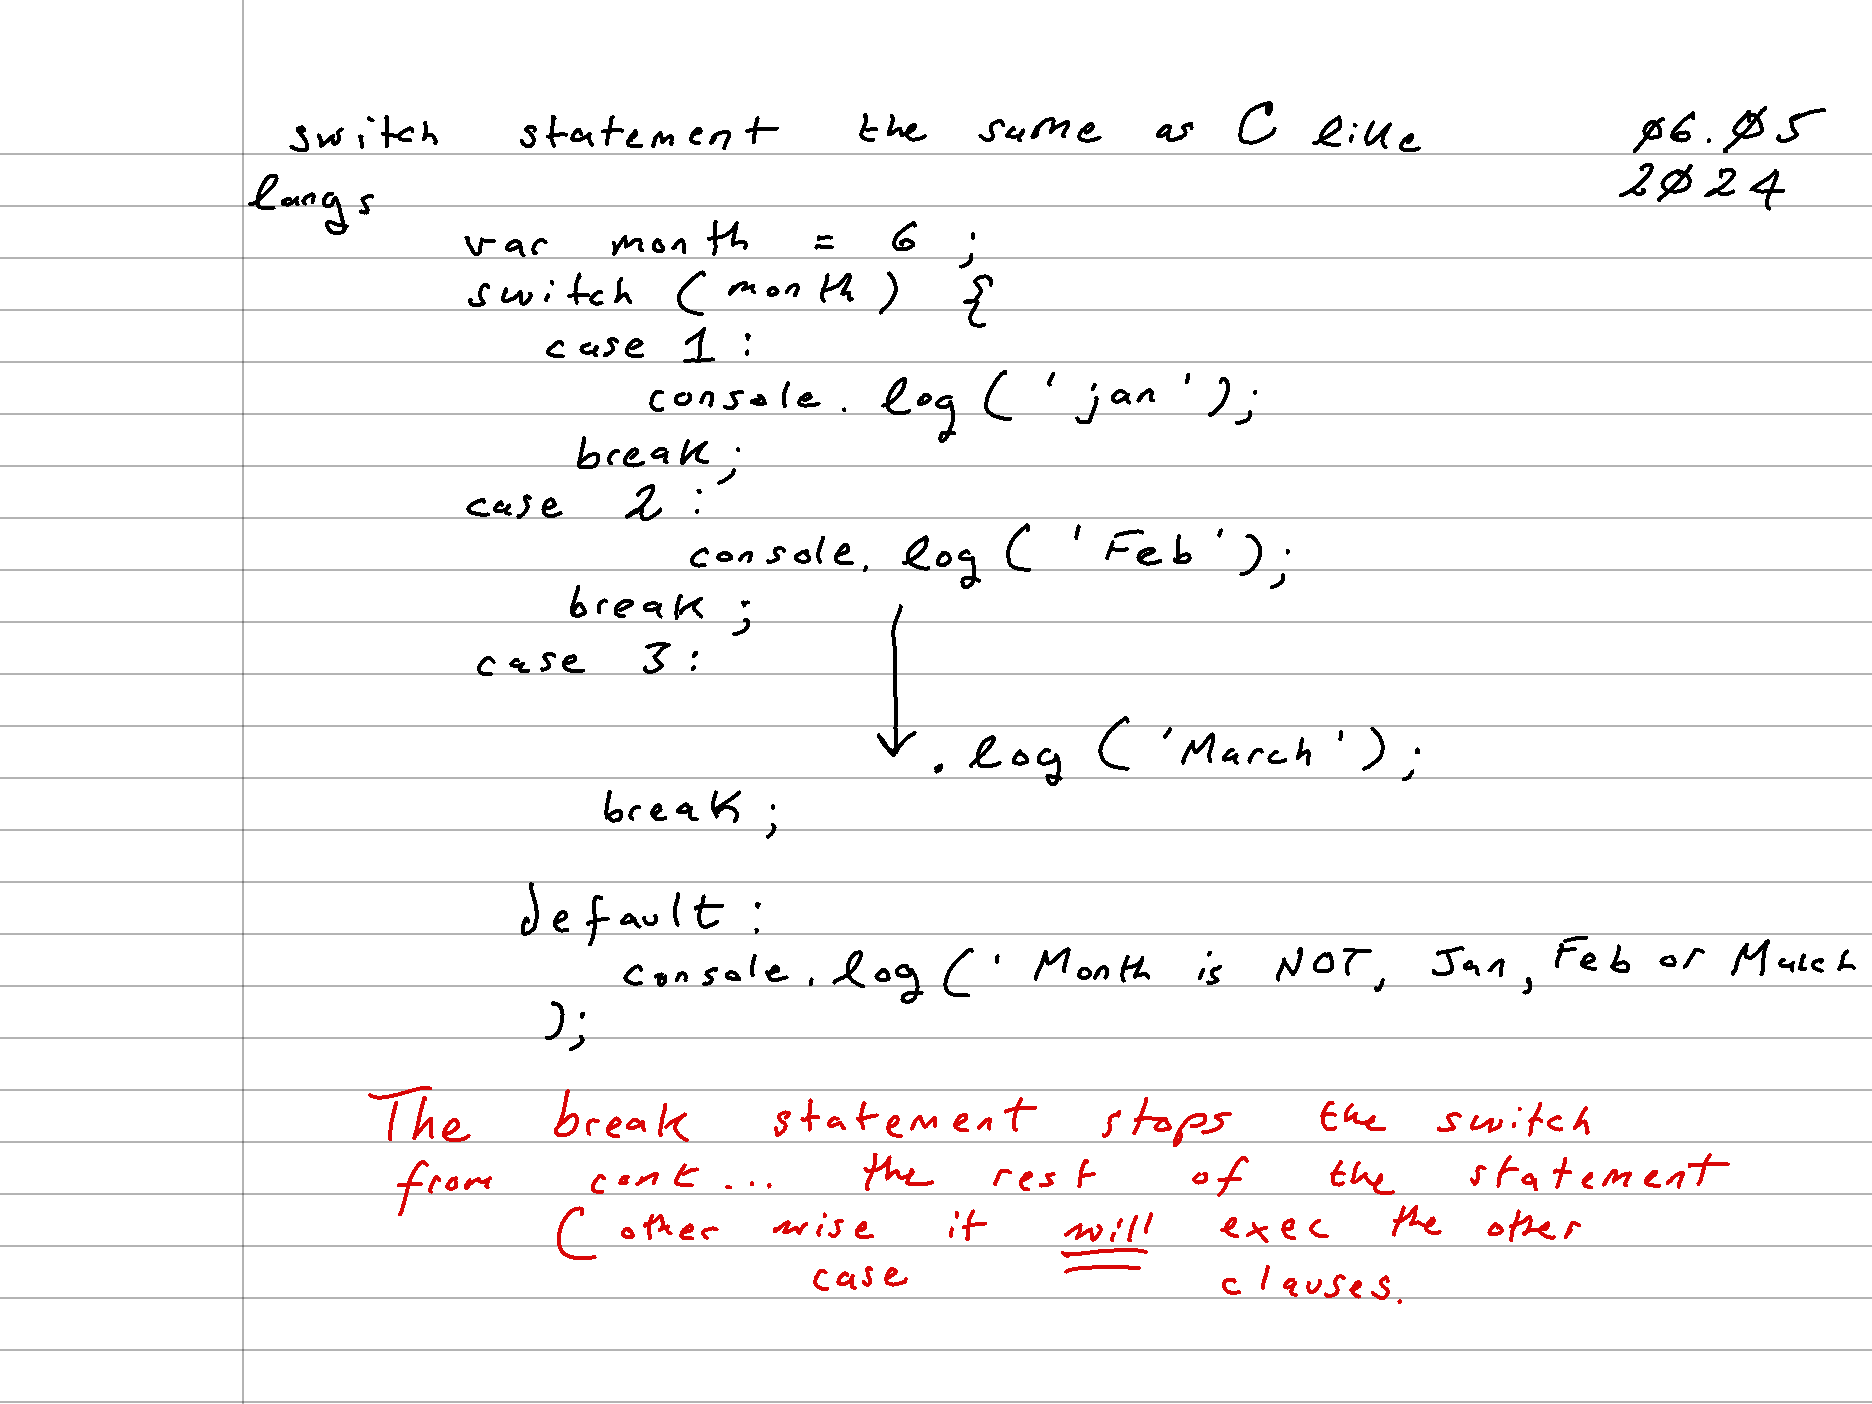 switch statement the same as C like 06.05
langs 2024
var month = 6 ;
switch (month) {
case 1 :
console. log ( 'jan' );
break;
case 2 :
console. log ( 'Feb' );
break ;
case 3 :
. log ( 'March' );
break ;
default :
console. log ( ' Month is NOT, Jan, Feb or March
);
The break statement stops the switch
from cont ... the rest of the statement
( other wise it will exec the other
case clauses.